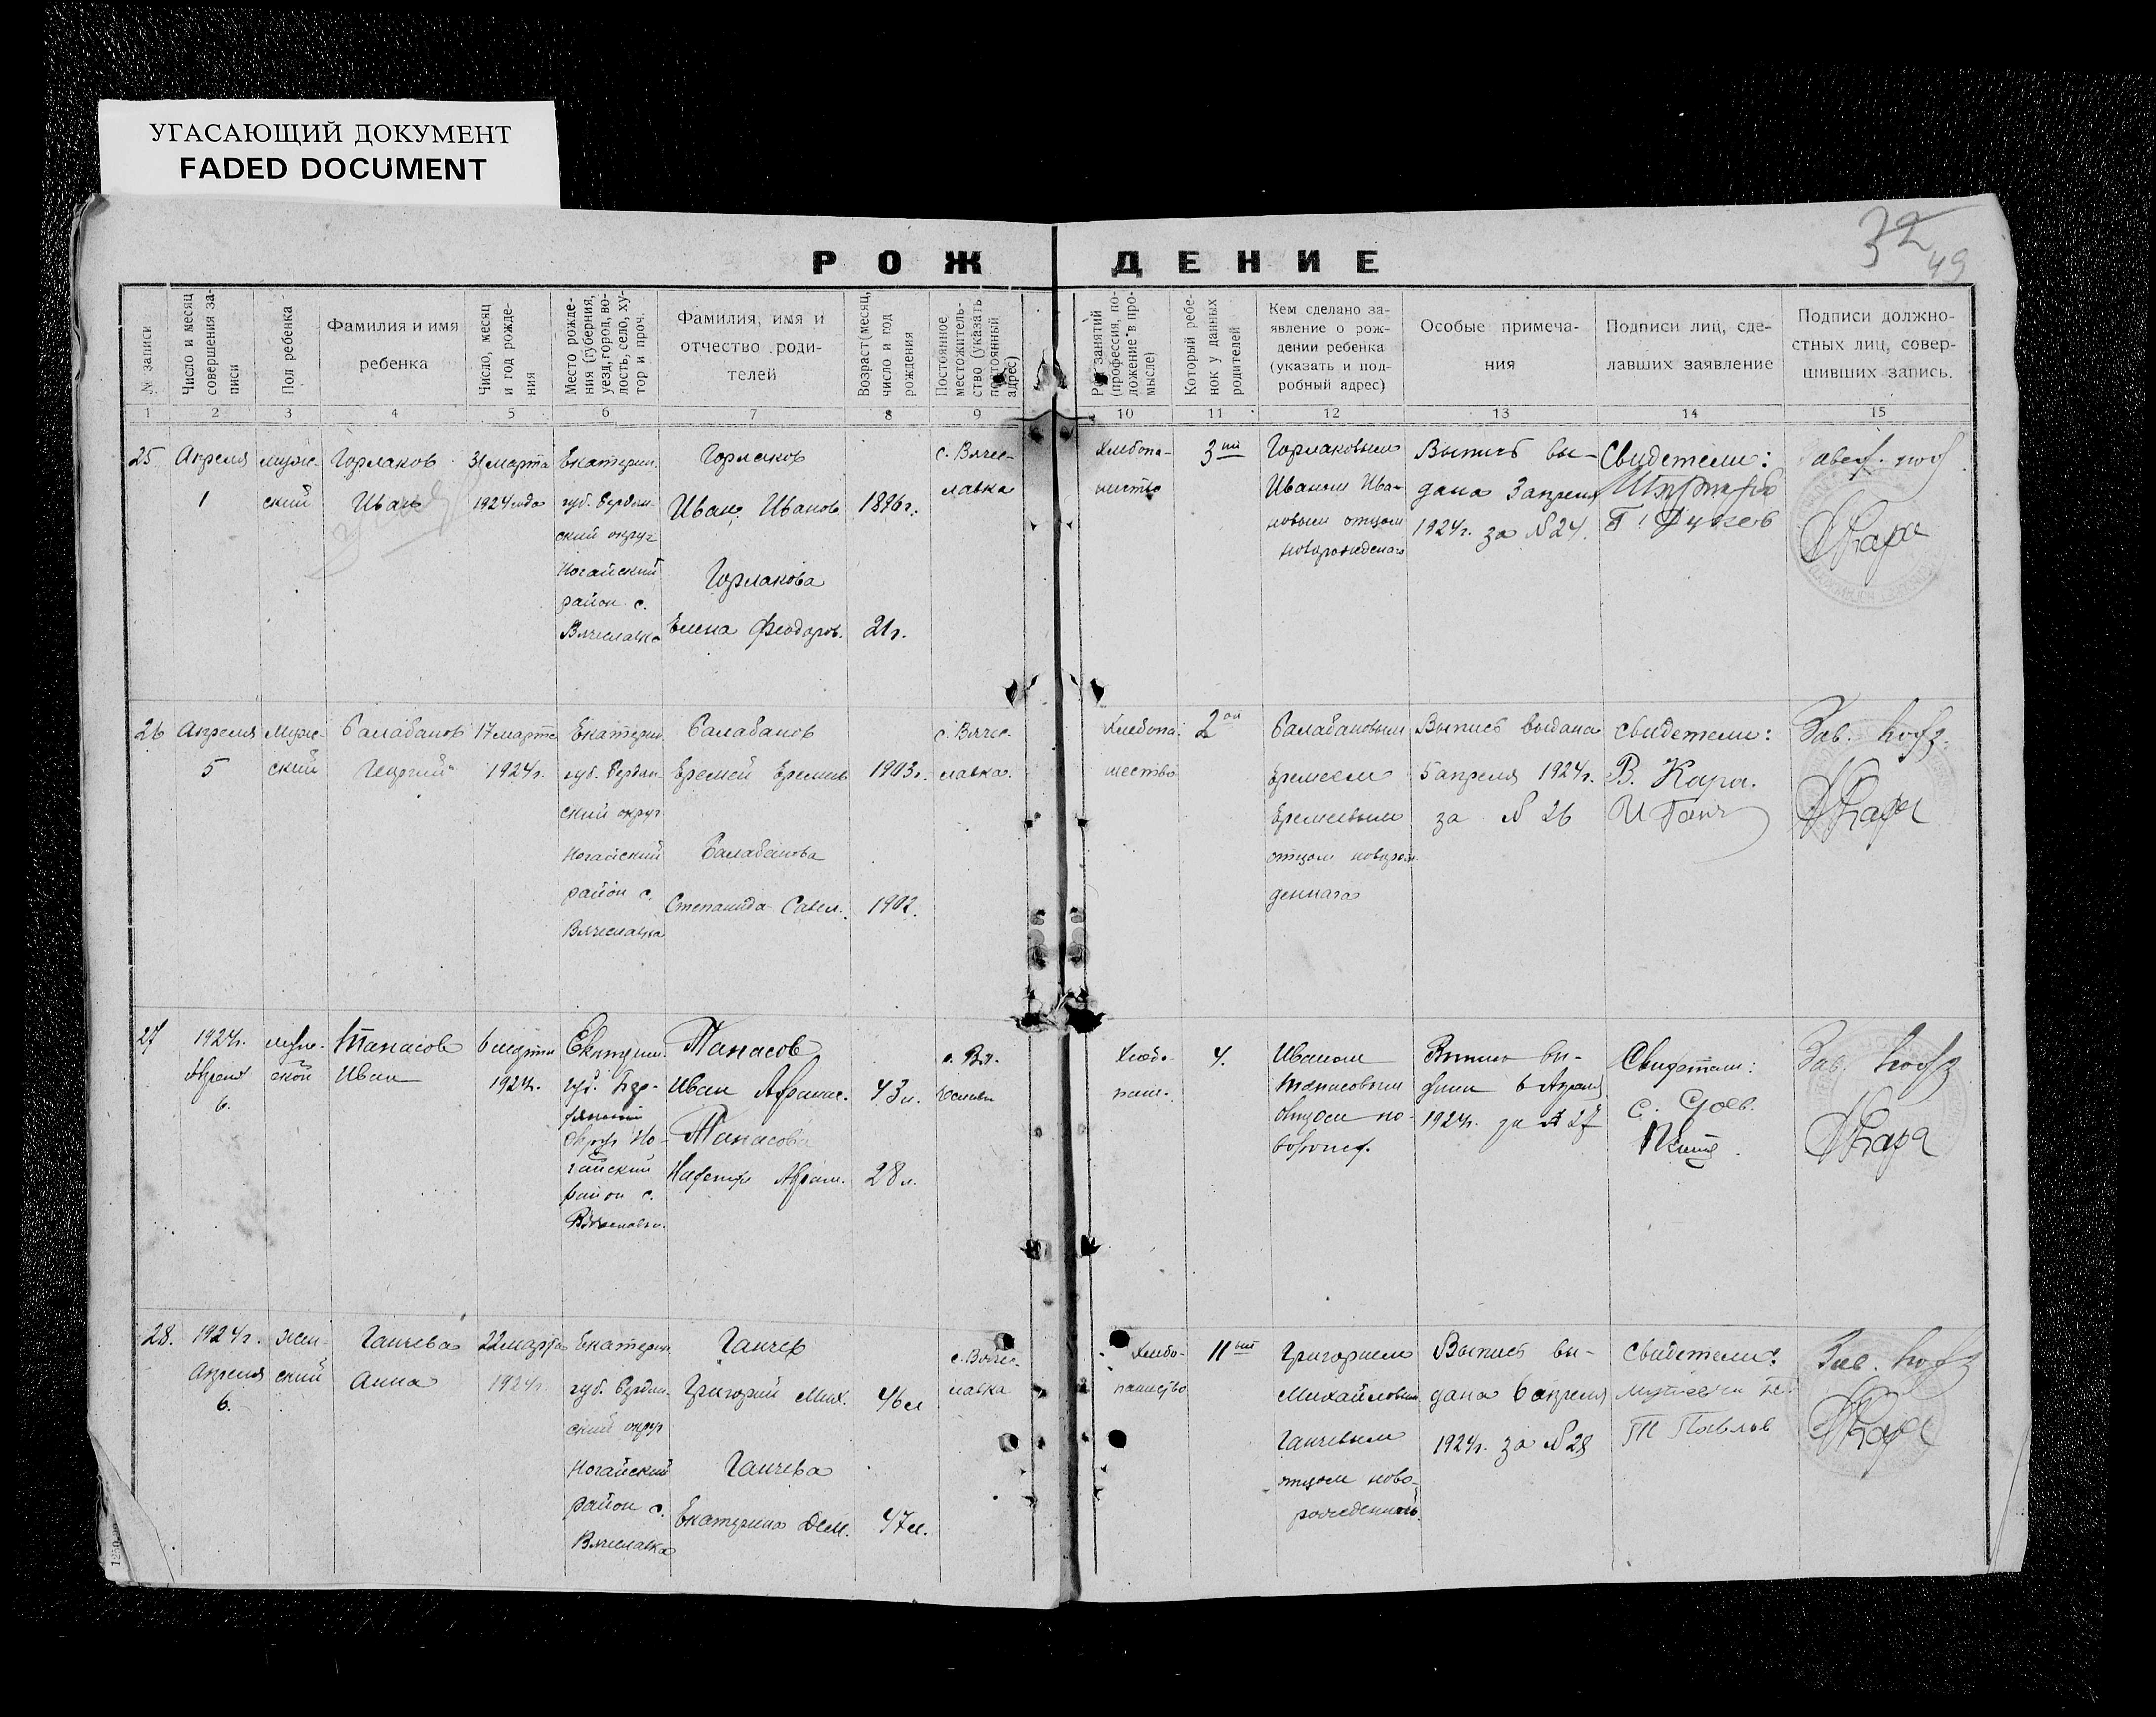 УГАСАЮЩИЙ ДОКУМЕНТ
FADED DOCUMENT
32
49
РОЖДЕНИЕ
№ записи
Число и месяц
совершения за-
писи
Пол ребенка
Фамилия и имя
ребенка
Число, месяц
и год рожде-
ния
Место рожде-
ния (губерния,
уезд, город, во-
лость, село, ху-
тор и проч.
Фамилия, имя и
отчество роди-
телей
Возраст (месяц,
число и год
рождения
Постоянное
местожитель-
ство (указать
постоянный
адрес)
Род занятий
(профессия, по-
ложение в про-
мысле)
Который ребе-
нок у данных
родителей
Кем сделано за-
явление о рож-
дении ребенка
(указать и под-
робный адрес)
Особые примеча-
ния
Подписи лиц, сде-
лавших заявление
Подписи должно-
стных лиц, совер-
шивших запись.
1 2 3 4 5 6 7 8 9 10 11 12 13 14 15
25
Апреля
1
мужс-
ский
Горлаков
Иван
31 марта
1924 года
Екатерин.
губ. Бердян-
ский округ
Ногайский
район с.
Вячеславка
Горлаков
Иван Иванов.
Горлакова
Елена Феодоров.
1896 г.
21 г.
с. Вячес-
лавка
Хлебопа-
шество
3ий
Горлаковым
Иваном Ива-
новым отцом
Выпись вы-
дана 3 апреля
1924 г. за № 24.
Свидетели:
Кара
26
Апреля
5
Мужс-
ский
Балабанов
Георгий
17 марта
1924 г.
Екатерин.
губ. Бердян-
ский округ
Ногайский
район с.
Вячеславка
Балабанов
Еремей Еремеев
Балабанова
Степанида Савел.
1903 г.
1902.
с. Вячес-
лавка.
Хлебопа-
шество
2ой
Балабановым
Еремеем
Еремеевым
отцом новорож-
деннаго
Выпись выдана
5 апреля 1924 г.
за № 26
свидетели:
В. Кара.
И Ганч
Зав.
Кара
27
1924 г.
Апреля
6.
муж.
ской
Танасов
Иван
6 марта
1924 г.
Екатерин.
губ. Бер-
дянский
округ Но-
гайский
район с.
Танасов
Иван Афанас.
Танасова
43 л.
28 л.
Хлебо-
паш.
4.
Иваном
Танасовым
отцом но-
Выпись вы-
дана 6 Апреля
1924 г. за № 27
Свидетели:
Зав.
Кара
28.
1924 г.
Апреля
6.
жен-
ский
Ганчева
Анна
22 марта
1924 г.
Екатерин.
губ. Бердян-
ский округ
Ногайский
район с.
Вячеславка
Ганчев
Григорий Мих.
Ганчева
Екатерина Дем.
46 л
47 л.
с. Вячес-
лавка
Хлебо-
пашество
11ый
Григорием
Михайловым
Ганчевым
отцом ново-
Выпись вы-
дана 6 апреля
1924 г. за № 28
свидетели:
Павлов
Зав.
Кара